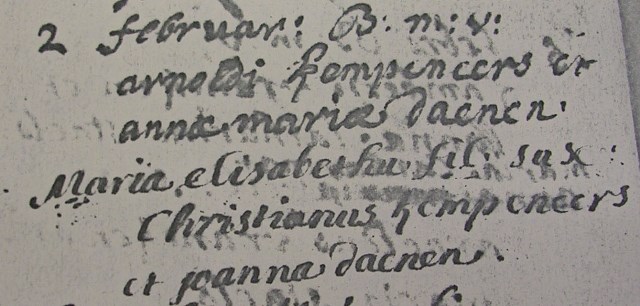 2 februar: B: m: v:
arnoldi kempeneers et
annæ mariæ daenen.
Maria elisabetha fil: sax:
Christianus kempeneers
et joanna daenen.